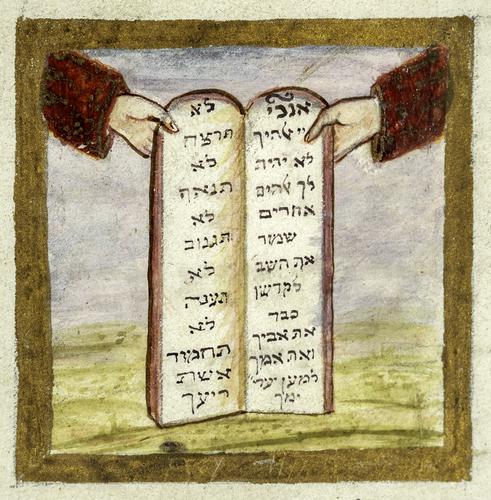 אנכי
יי אלהיך
לא יהיה
לך אלהים
אחרים
שמור
את השב
לקדשו
כבד
את אביך
ואת אמך
למען
ימיך
לא
תרצח
לא
תנאף
לא
תגנוב
לא
תענה
לא
תחמוד
אשת
ריעך